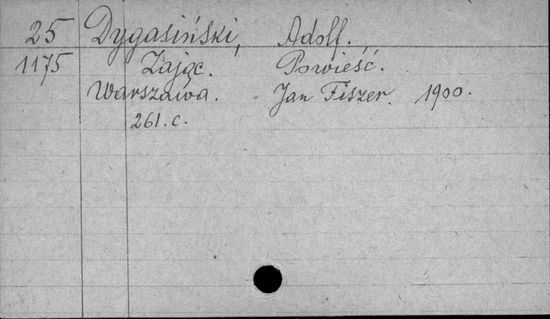 25 Dygasiński, Adolf.
1175 Zając. Powieść.
Warszawa. Jan Fiszer. 1900.
261. c.